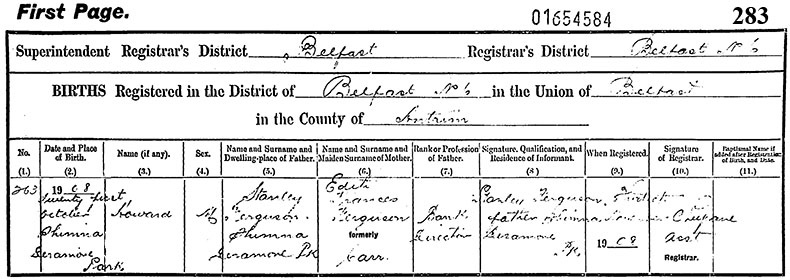 First Page.
01654584
283
Superintendent Registrar's District Belfast Registrar's District Belfast No 6
BIRTHS Registered in the District of Belfast No 6 in the Union of Belfast
in the County of Antrim
No. (1.)
Date and Place of Birth. (2.)
Name (if any). (3.)
Sex. (4.)
Name and Surname and Dwelling-place of Father. (5.)
Name and Surname and Maiden Surname of Mother. (6.)
Rank or Profession of Father. (7.)
Signature, Qualification, and Residence of Informant. (8)
When Registered. (9.)
Signature of Registrar. (10.)
Baptismal Name if added after Registration of Birth, and Date. (11.)
263
1908
Twenty first
October
Shimna
Deramore
Park
Howard
M
Stanley
Ferguson
Shimna
Deramore Pk
Edith
Frances
Ferguson
formerly
Carr.
Bank
Director
Stanley Ferguson,
father Shimna
Deramore
Pk.
1908
asst
Registrar.